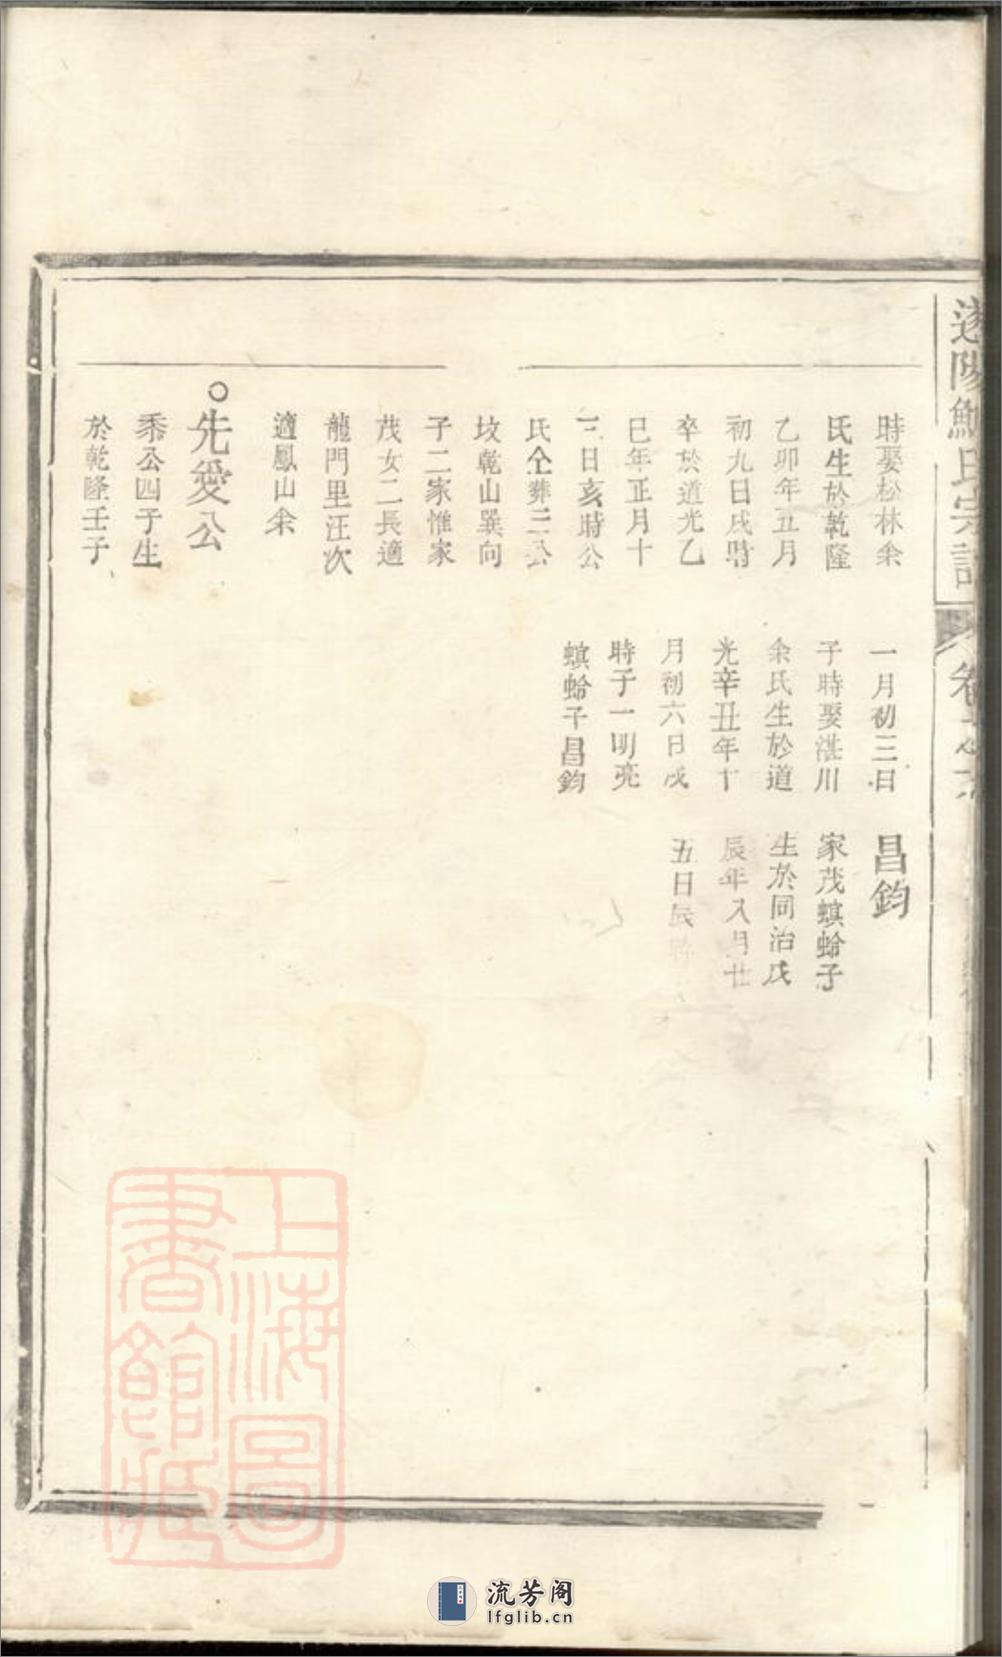 時娶松林余
氏生於乾隆
乙卯年五月
初九日戌時
卒於道光乙
巳年正月十
三日亥時公
氏仝葬三公
坟乾山巽向
子二家惟家
茂女二長適
龍門里汪次
適鳳山余
○先愛公
黍公四子生
於乾隆壬子
一月初三日
子時娶湛川
余氏生於道
光辛丑年十
月初六日戌
時子一明亮
螟蛉子昌鈞
昌鈞
家茂螟蛉子
生於同治戊
辰年八月廿
五日辰時
上海圖
書館藏
流芳阁
lfglib.cn